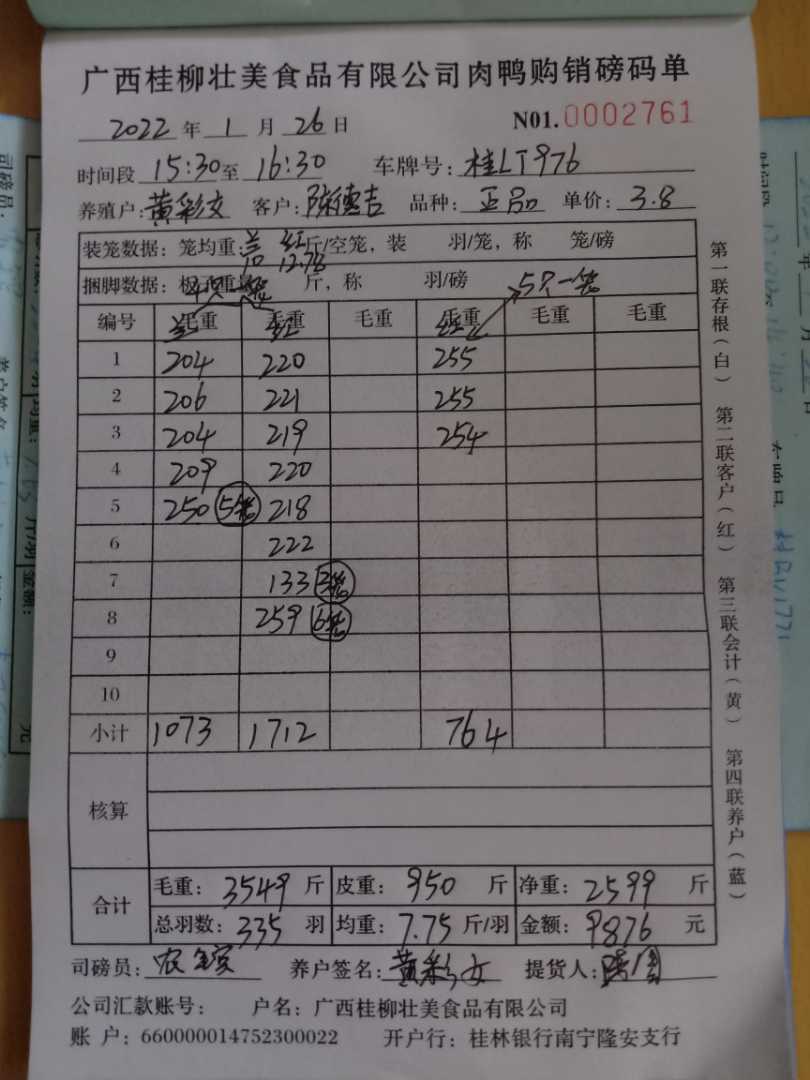 广西桂柳壮美食品有限公司肉鸭购销磅码单
2022 年 1 月 26 日 N01.0002761
时间段 15:30 至 16:30 车牌号: 桂LT976
养殖户: 黄彩女 客户: 陈德吉 品种: 正品 单价: 3.8
装笼数据: 笼均重: 兰 红 斤/空笼, 装 羽/笼, 称 笼/磅
10 12.78
捆脚数据: 斤, 称 羽/磅 5只一笼
编号 毛重 毛重 毛重 毛重 毛重 毛重
1 204 220 255
2 206 221 255
3 204 219 254
4 209 220
5 250 5笼 218
6 222
7 133 3笼
8 259 6笼
9
10
小计 1073 1712 764
核算
合计
毛重: 3549 斤 皮重: 950 斤 净重: 2599 斤
总羽数: 335 羽 均重: 7.75 斤/羽 金额: 9876 元
司磅员: 养户签名: 黄彩女 提货人:
公司汇款账号: 户名: 广西桂柳壮美食品有限公司
账 户: 660000014752300022 开户行: 桂林银行南宁隆安支行
第一联存根(白) 第二联客户(红) 第三联会计(黄) 第四联养户(蓝)